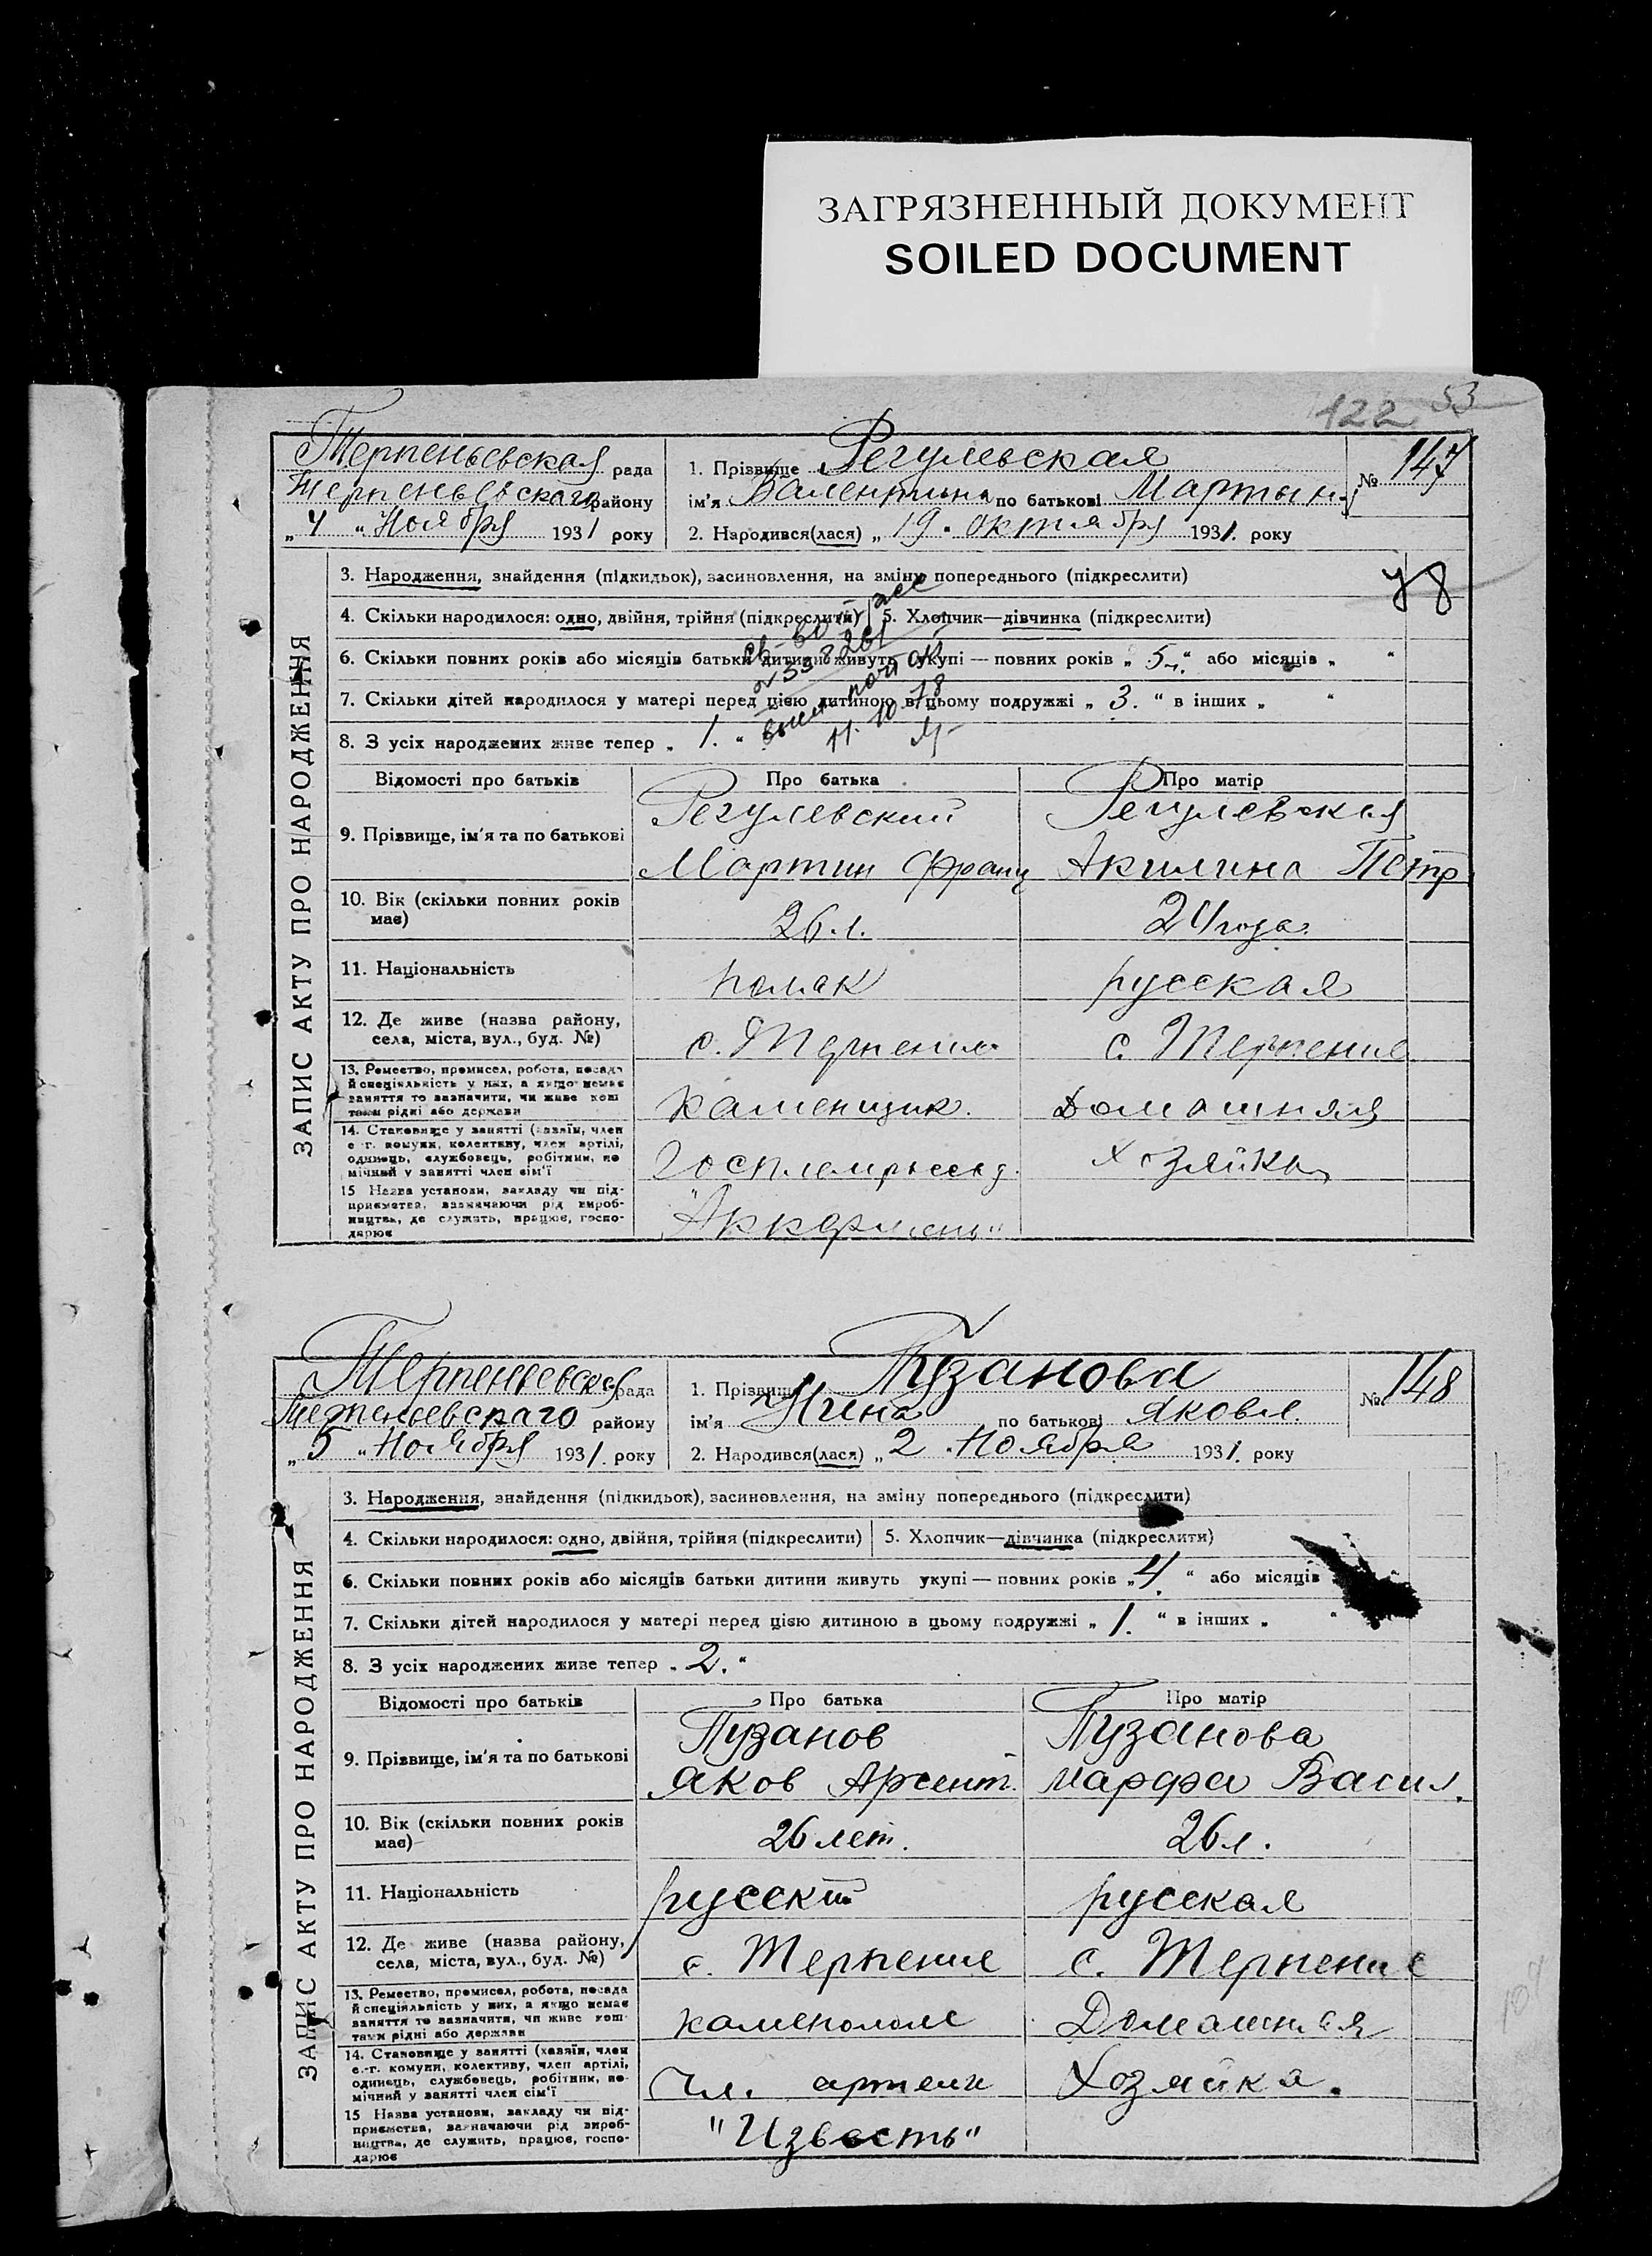 ЗАГРЯЗНЕННЫЙ ДОКУМЕНТ
SOILED DOCUMENT
122 53
Терпеньевская рада
Терпеньевскаго району
„4“ Ноября 1931 року
1. Прізвище Регулевская
ім'я Валентина по батькові Мартын.
2. Народився(лася) „19“ октября 1931. року
№ 147
ЗАПИС АКТУ ПРО НАРОДЖЕННЯ
3. Народження, знайдення (підкидьок), засиновлення, на зміну попереднього (підкреслити)
78
4. Скільки народилося: одно, двійня, трійня (підкреслити) 5. Хлопчик—дівчинка (підкреслити)
6. Скільки повних років або місяців батьки дитини живуть укупі — повних років „5“ або місяців „ “
7. Скільки дітей народилося у матері перед цією дитиною в цьому подружжі „3.“ в інших „ “
8. З усіх народжених живе тепер „1.“
11. 10. 78
Відомості про батьків Про батька Про матір
9. Прізвище, ім'я та по батькові Регулевский Регулевская
Мартин Франц Акилина Петр
10. Вік (скільки повних років має) 26.л. 24 года.
11. Національність поляк русская
12. Де живе (назва району, села, міста, вул., буд. №) с. Терпение с. Терпение
13. Ремество, промисел, робота, посада й спеціяльність у них, а якщо немає заняття то зазначити, чи живе кошт. таки рідні або держави Каменщик. Домашняя
14. Становище у занятті (хазяїн, член с.-г. комуни, колективу, член артілі, одинець, службовець, робітник, помічний у занятті член сім'ї Госплемрассад. хозяйка
15 Назва установи, закладу чи підприємства, зазначаючи рід виробництва, де служить, працює, господарює "Аккермень"
Терпеньевская рада
району
„5“ Ноября 1931. року
1. Прізвище Пузанова
ім'я Нина по батькові Яковл.
2. Народився(лася) „2“ Ноября 1931. року
№ 148
ЗАПИС АКТУ ПРО НАРОДЖЕННЯ
3. Народження, знайдення (підкидьок), засиновлення, на зміну попереднього (підкреслити)
4. Скільки народилося: одно, двійня, трійня (підкреслити) 5. Хлопчик—дівчинка (підкреслити)
6. Скільки повних років або місяців батьки дитини живуть укупі — повних років „4.“ або місяців
7. Скільки дітей народилося у матері перед цією дитиною в цьому подружжі „1.“ в інших „ “
8. З усіх народжених живе тепер „2.“
Відомості про батьків Про батька Про матір
9. Прізвище, ім'я та по батькові Пузанов Пузанова
Яков Арсент. Марфа Васил.
10. Вік (скільки повних років має) 26 лет. 26 л.
11. Національність русский русская
12. Де живе (назва району, села, міста, вул., буд. №) с. Терпение с. Терпение
13. Ремество, промисел, робота, посада й спеціяльність у них, а якщо немає заняття то зазначити, чи живе кошт. таки рідні або держави каменолом Домашняя
14. Становище у занятті (хазяїн, член с.-г. комуни, колективу, член артілі, одинець, службовець, робітник, помічний у занятті член сім'ї Чл. артели Хозяйка.
15 Назва установи, закладу чи підприємства, зазначаючи рід виробництва, де служить, працює, господарює "Известь"